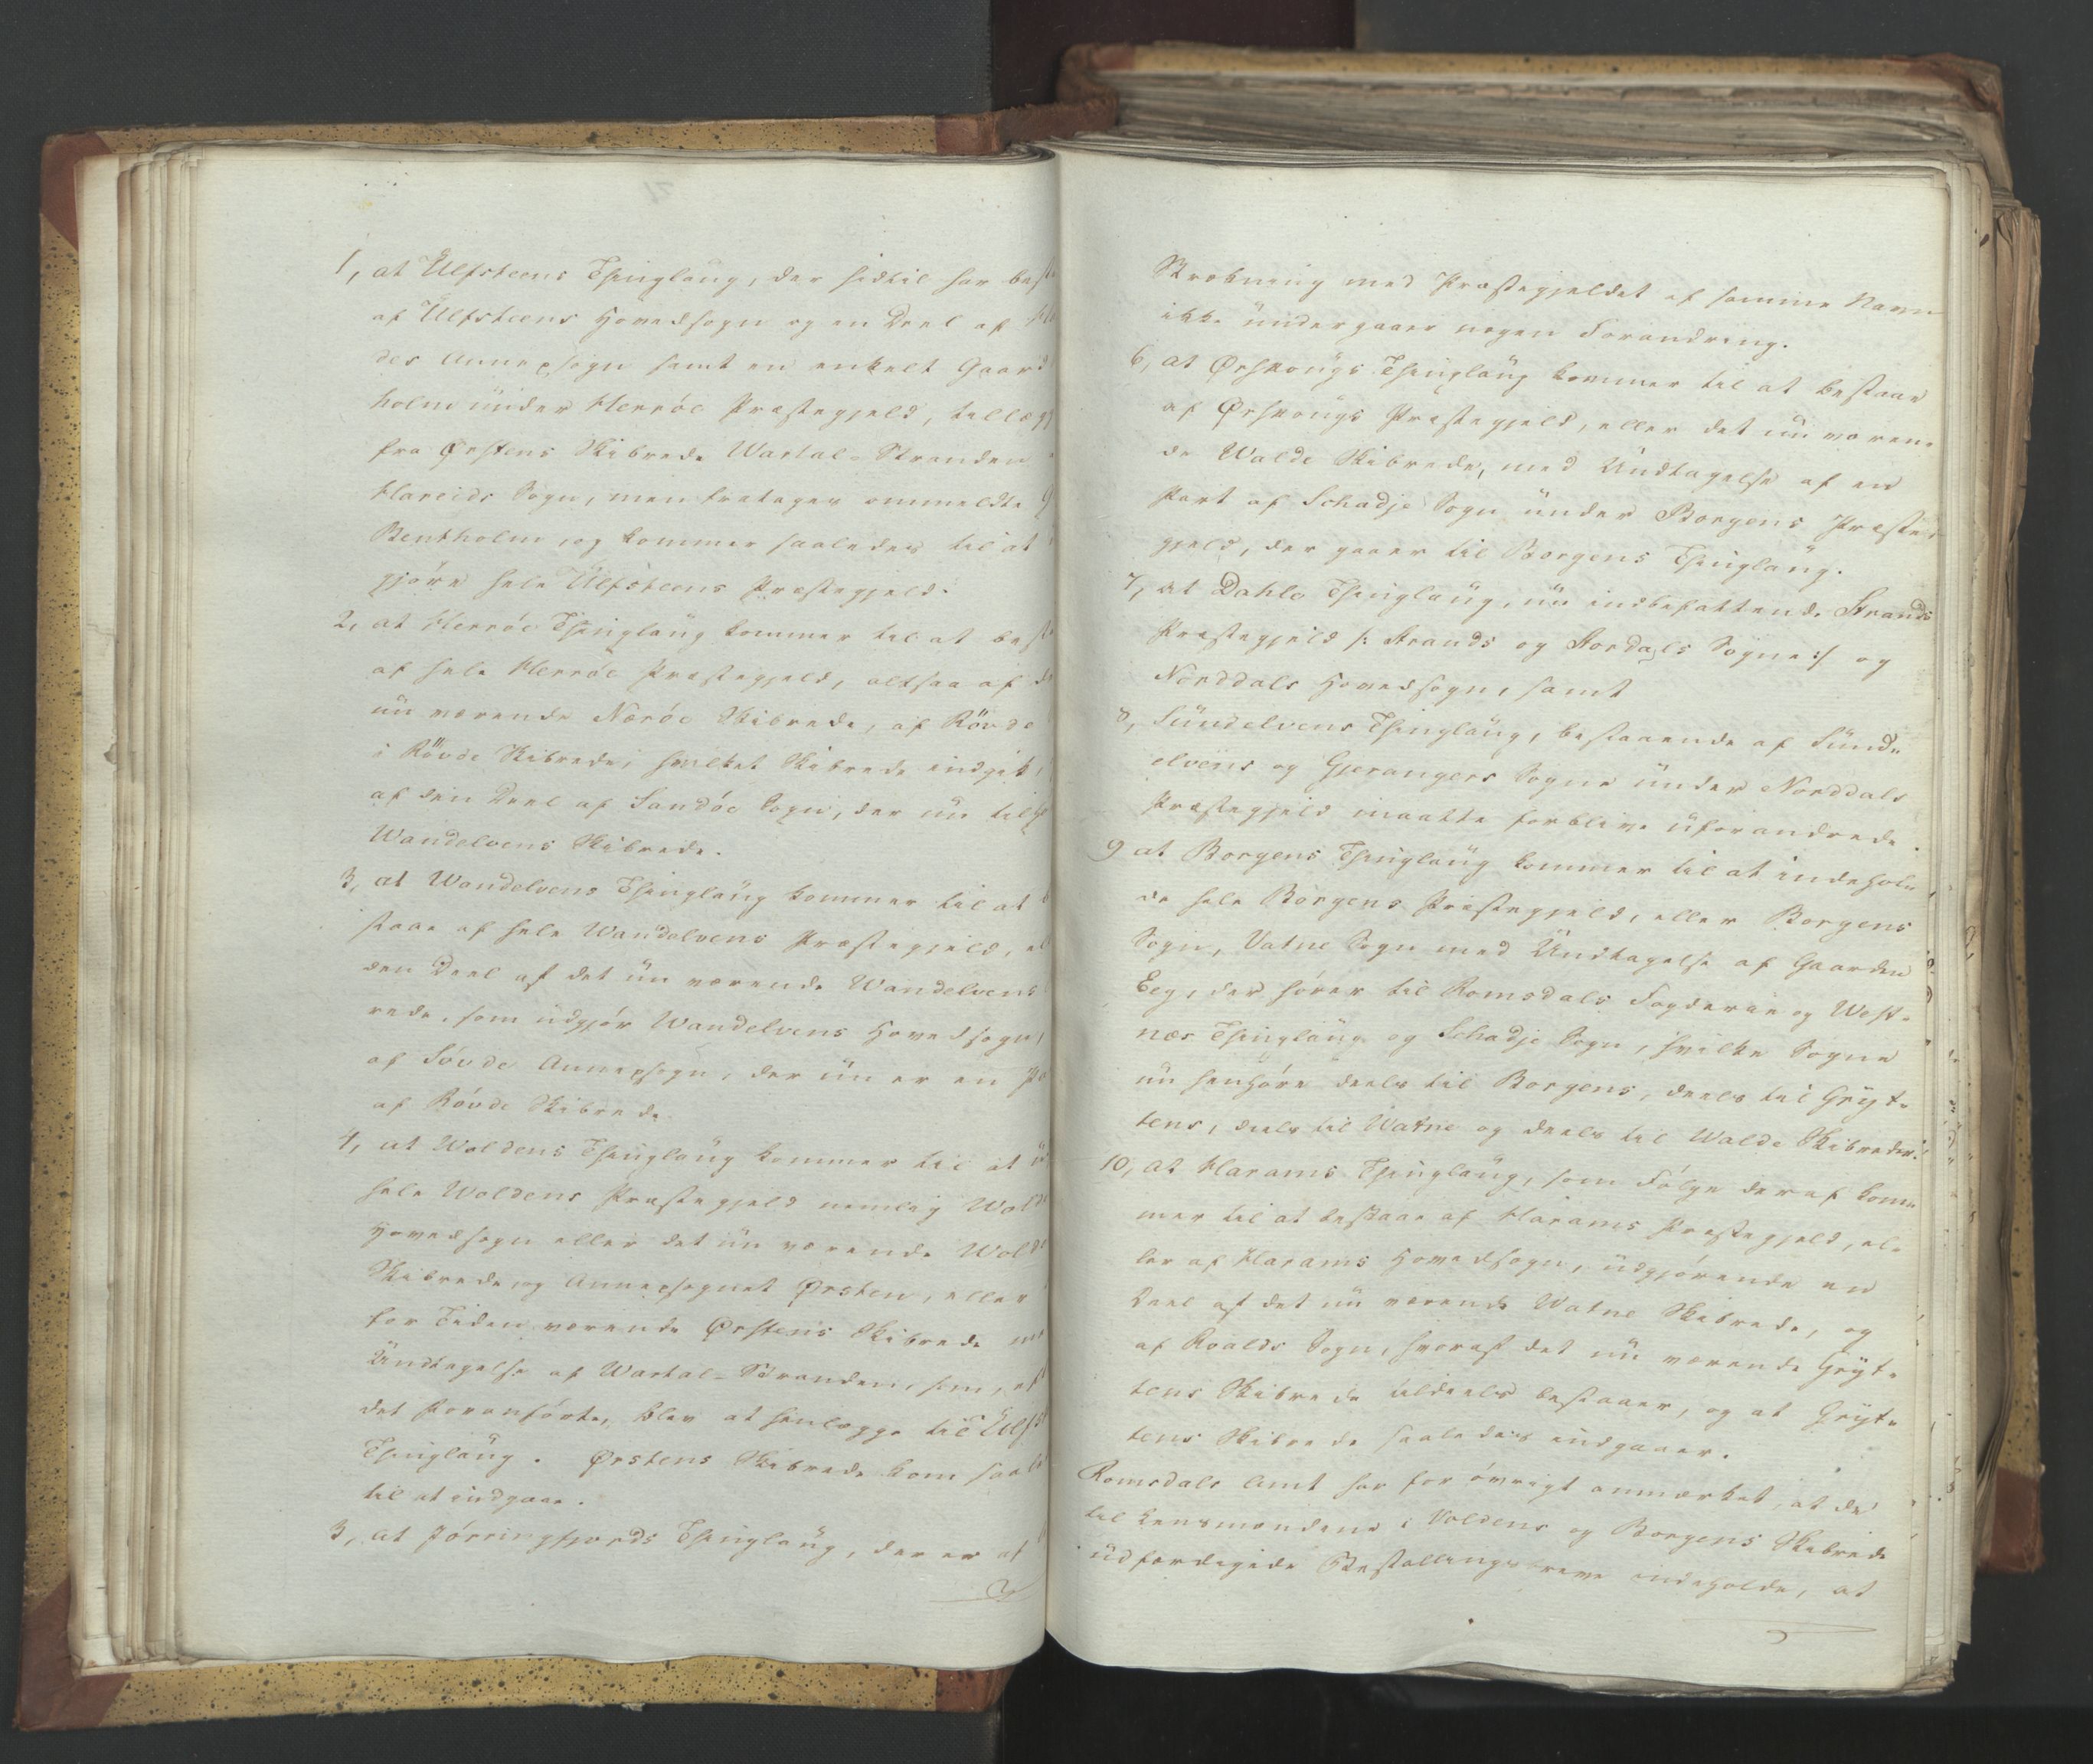 1, at Ulfsteens Thinglaug, der hidtil har best
af Ulfsteens Hovedsogn og en Deel af
des Annexsogn samt en enkelt Gaard
holm under Herróe Præstegjeld, tillægg
fra Ørstens Skibrede Wartal-Stranden
Hareids Sogn, men fratages ommeldte G
Bentholm, og kommer saaledes til at
gjöre hele Ulfsteens Præstegjeld.
2, at Herróe Thinglaug kommer til at best
af hele Herróe Præstegjeld, altsaa af de
nu værende Neróe Skibrede, af Rövde
i Rövde Skibrede, hvilket Skibrede indgik,
af den Deel af Sandöe Sogn, der nu tilh
Wandelvens Skibrede.
3, at Wandelvens Thinglaug kommer til at b
staae af hele Wandelvens Præstegjeld, el
den Deel af det nu værende Wandelvens
rede, som udgjör Wandelvens Hovedsogn,
af Sövde Annexsogn, der nu er en Pa
af Rövde Skibrede.
4, at Woldens Thinglaug kommer til at u
hele Woldens Præstegjeld nemlig Wold
Hovedsogn eller det nu værende Wolde
Skibrede, og Annexsognet Ørsten, eller
for Tiden værende Ørstens Skibrede m
Undtagelse af Wartal-Stranden, som, eft
det Foranförte, blev at henlægge til Ulfst
Thinglaug. Ørstens Skibrede kom saale
til at indgaae.
5, at Jörringfjords Thinglaug, der er af
Strækning med Præstegjeldet af samme Navn
ikke undergaaer nogen Forandring.
6, at Ørskougs Thinglaug kommer til at bestaae
af Ørskougs Præstegjeld, eller det nu væren-
de Walde Skibrede, med Undtagelse af en
Part af Schadje Sogn under Borgens Præste-
gjeld, der gaaer til Borgens Thinglaug.
7, at Dahls Thinglaug, nu indbefattende Strands
Præstegjeld /: Strands og Stordals Sogne :/ og
Norddals Hovedsogn, samt
8, Sundelvens Thinglaug, bestaaende af Sund-
elvens og Gjerangers Sogne under Norddals
Præstegjeld maatte forblive uforandrede.
9 at Borgens Thinglaug kommer til at indehol-
de hele Borgens Præstegjeld, eller Borgens
Sogn, Vatne Sogn med Undtagelse af Gaarden
Eeg, der hörer til Romsdals Fogderie og West-
næs Thinglaug og Schadje Sogn, hvilke Sogne
nu henhöre deels til Borgens, deels til Gryt-
tens, deels til Watne og deels til Walde Skibreder.
10, at Harams Thinglaug, som Fölge deraf kom-
mer til at bestaae af Harams Præstegjeld, el-
ler af Harams Hovedsogn, udgjörende en
Deel af det nu værende Watne Skibrede, og
af Roalds Sogn, hvoraf det nu værende Gryt-
tens Skibrede tildeels bestaaer, og at Gryt-
tens Skibrede saaledes indgaaer.
Romsdals Amt har for övrigt anmærket, at de
til Lensmændene i Voldens og Borgens Skibrede
udfærdigede Bestallingsbreve indeholde, at